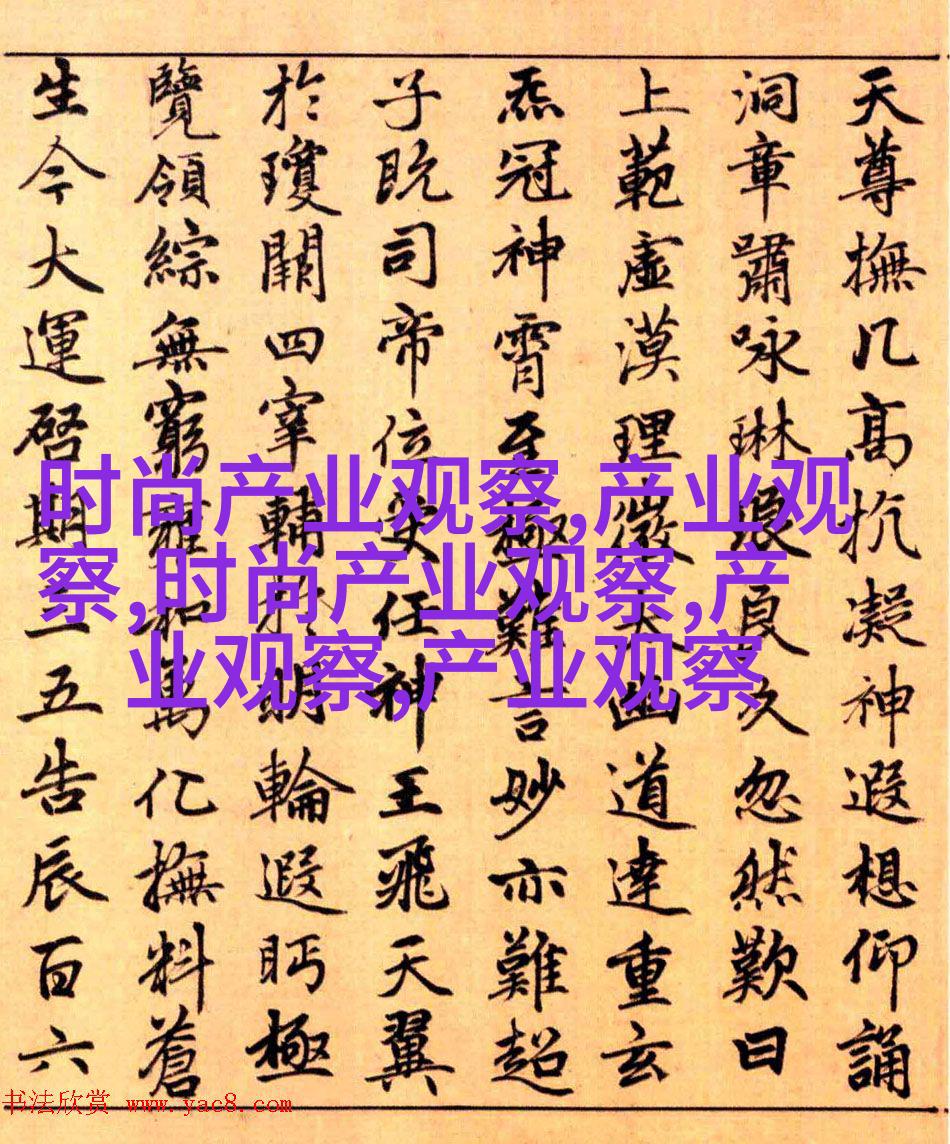 天尊撫几高抗凝神遐想仰誦
洞章嘯咏琳琅良久忽然歎曰
上範虛漠理微太幽道達重玄
炁冠神霄至極難言妙亦難超
子既司帝位任神王飛天翼
於瓊闕四宰輔於輪遐眄極
覽領綜無窮和萬化撫料蒼
生今大運啓期三五告辰百六
时尚产业观察,产业观
察,时尚产业观察,产
业观察,产业观察
书法欣赏 www.yac8.com